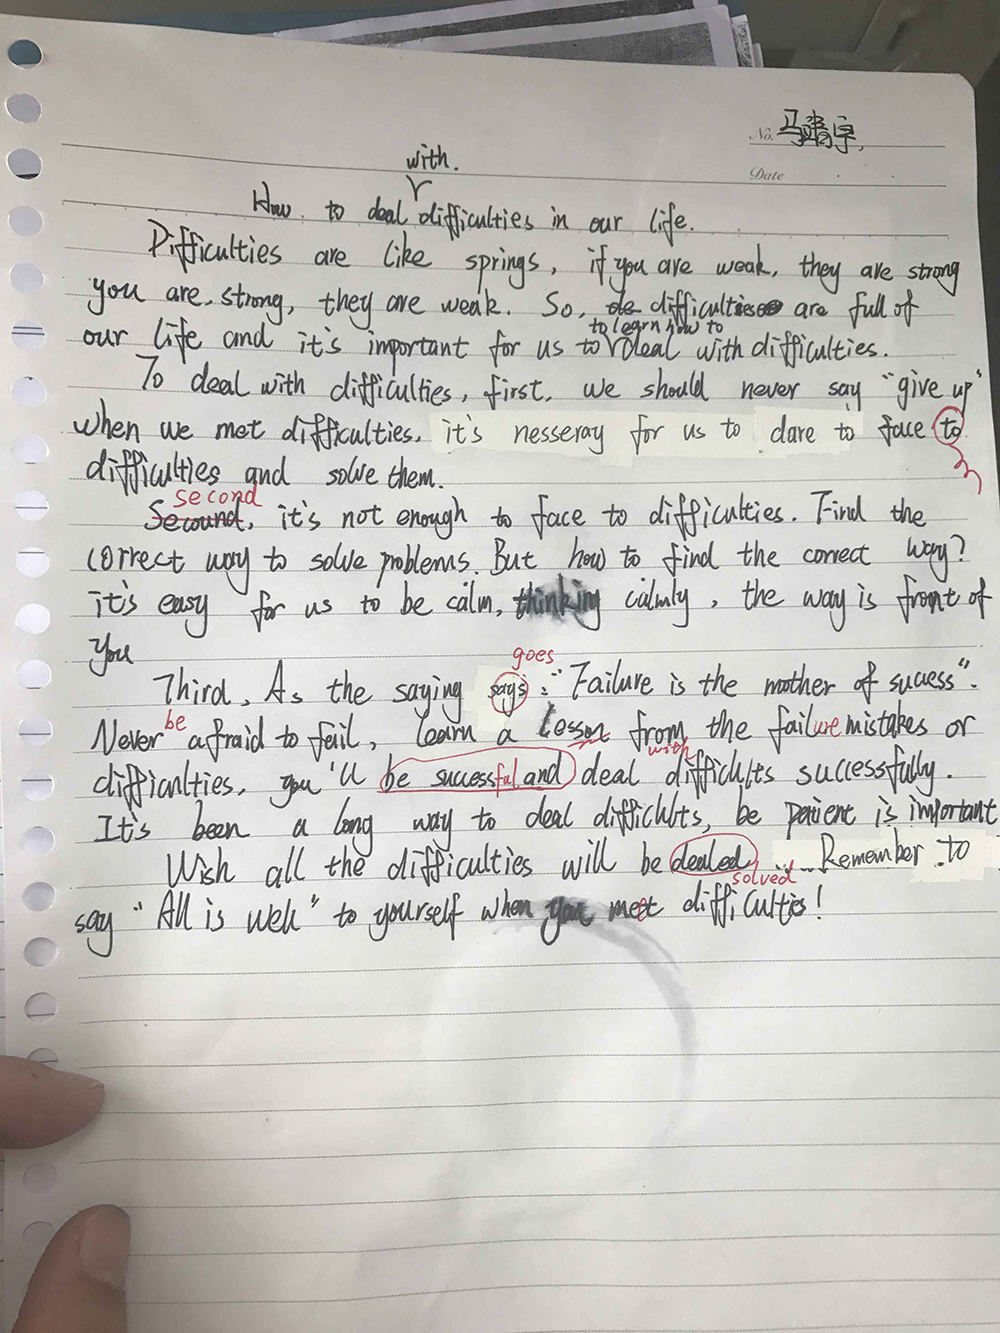 No. 马靖宇.
Date
with.
How to deal difficulties in our life.
Difficulties are like springs, if you are weak, they are strong
you are strong, they are weak. So, de difficulties are full of
to learn how to
our life and it's important for us to deal with difficulties.
To deal with difficulties, first, we should never say "give up"
when we met difficulties, it's nesseray for us to dare to face to
difficulties and solve them.
second
Secound, it's not enough to face to difficulties. Find the
correct way to solve problems. But how to find the correct way?
it's easy for us to be calm, thinking calmly, the way is front of
you
goes
Third, As the saying says: "Failure is the mother of success".
be
Never afraid to fail, learn a lesson from the failure mistakes or
with
difficulties, you'll be successful and deal difficults successfully.
It's been a long way to deal difficults, be patient is important
Wish all the difficulties will be dealed ...... Remember to
solved
say "All is well" to yourself when you meet difficulties!